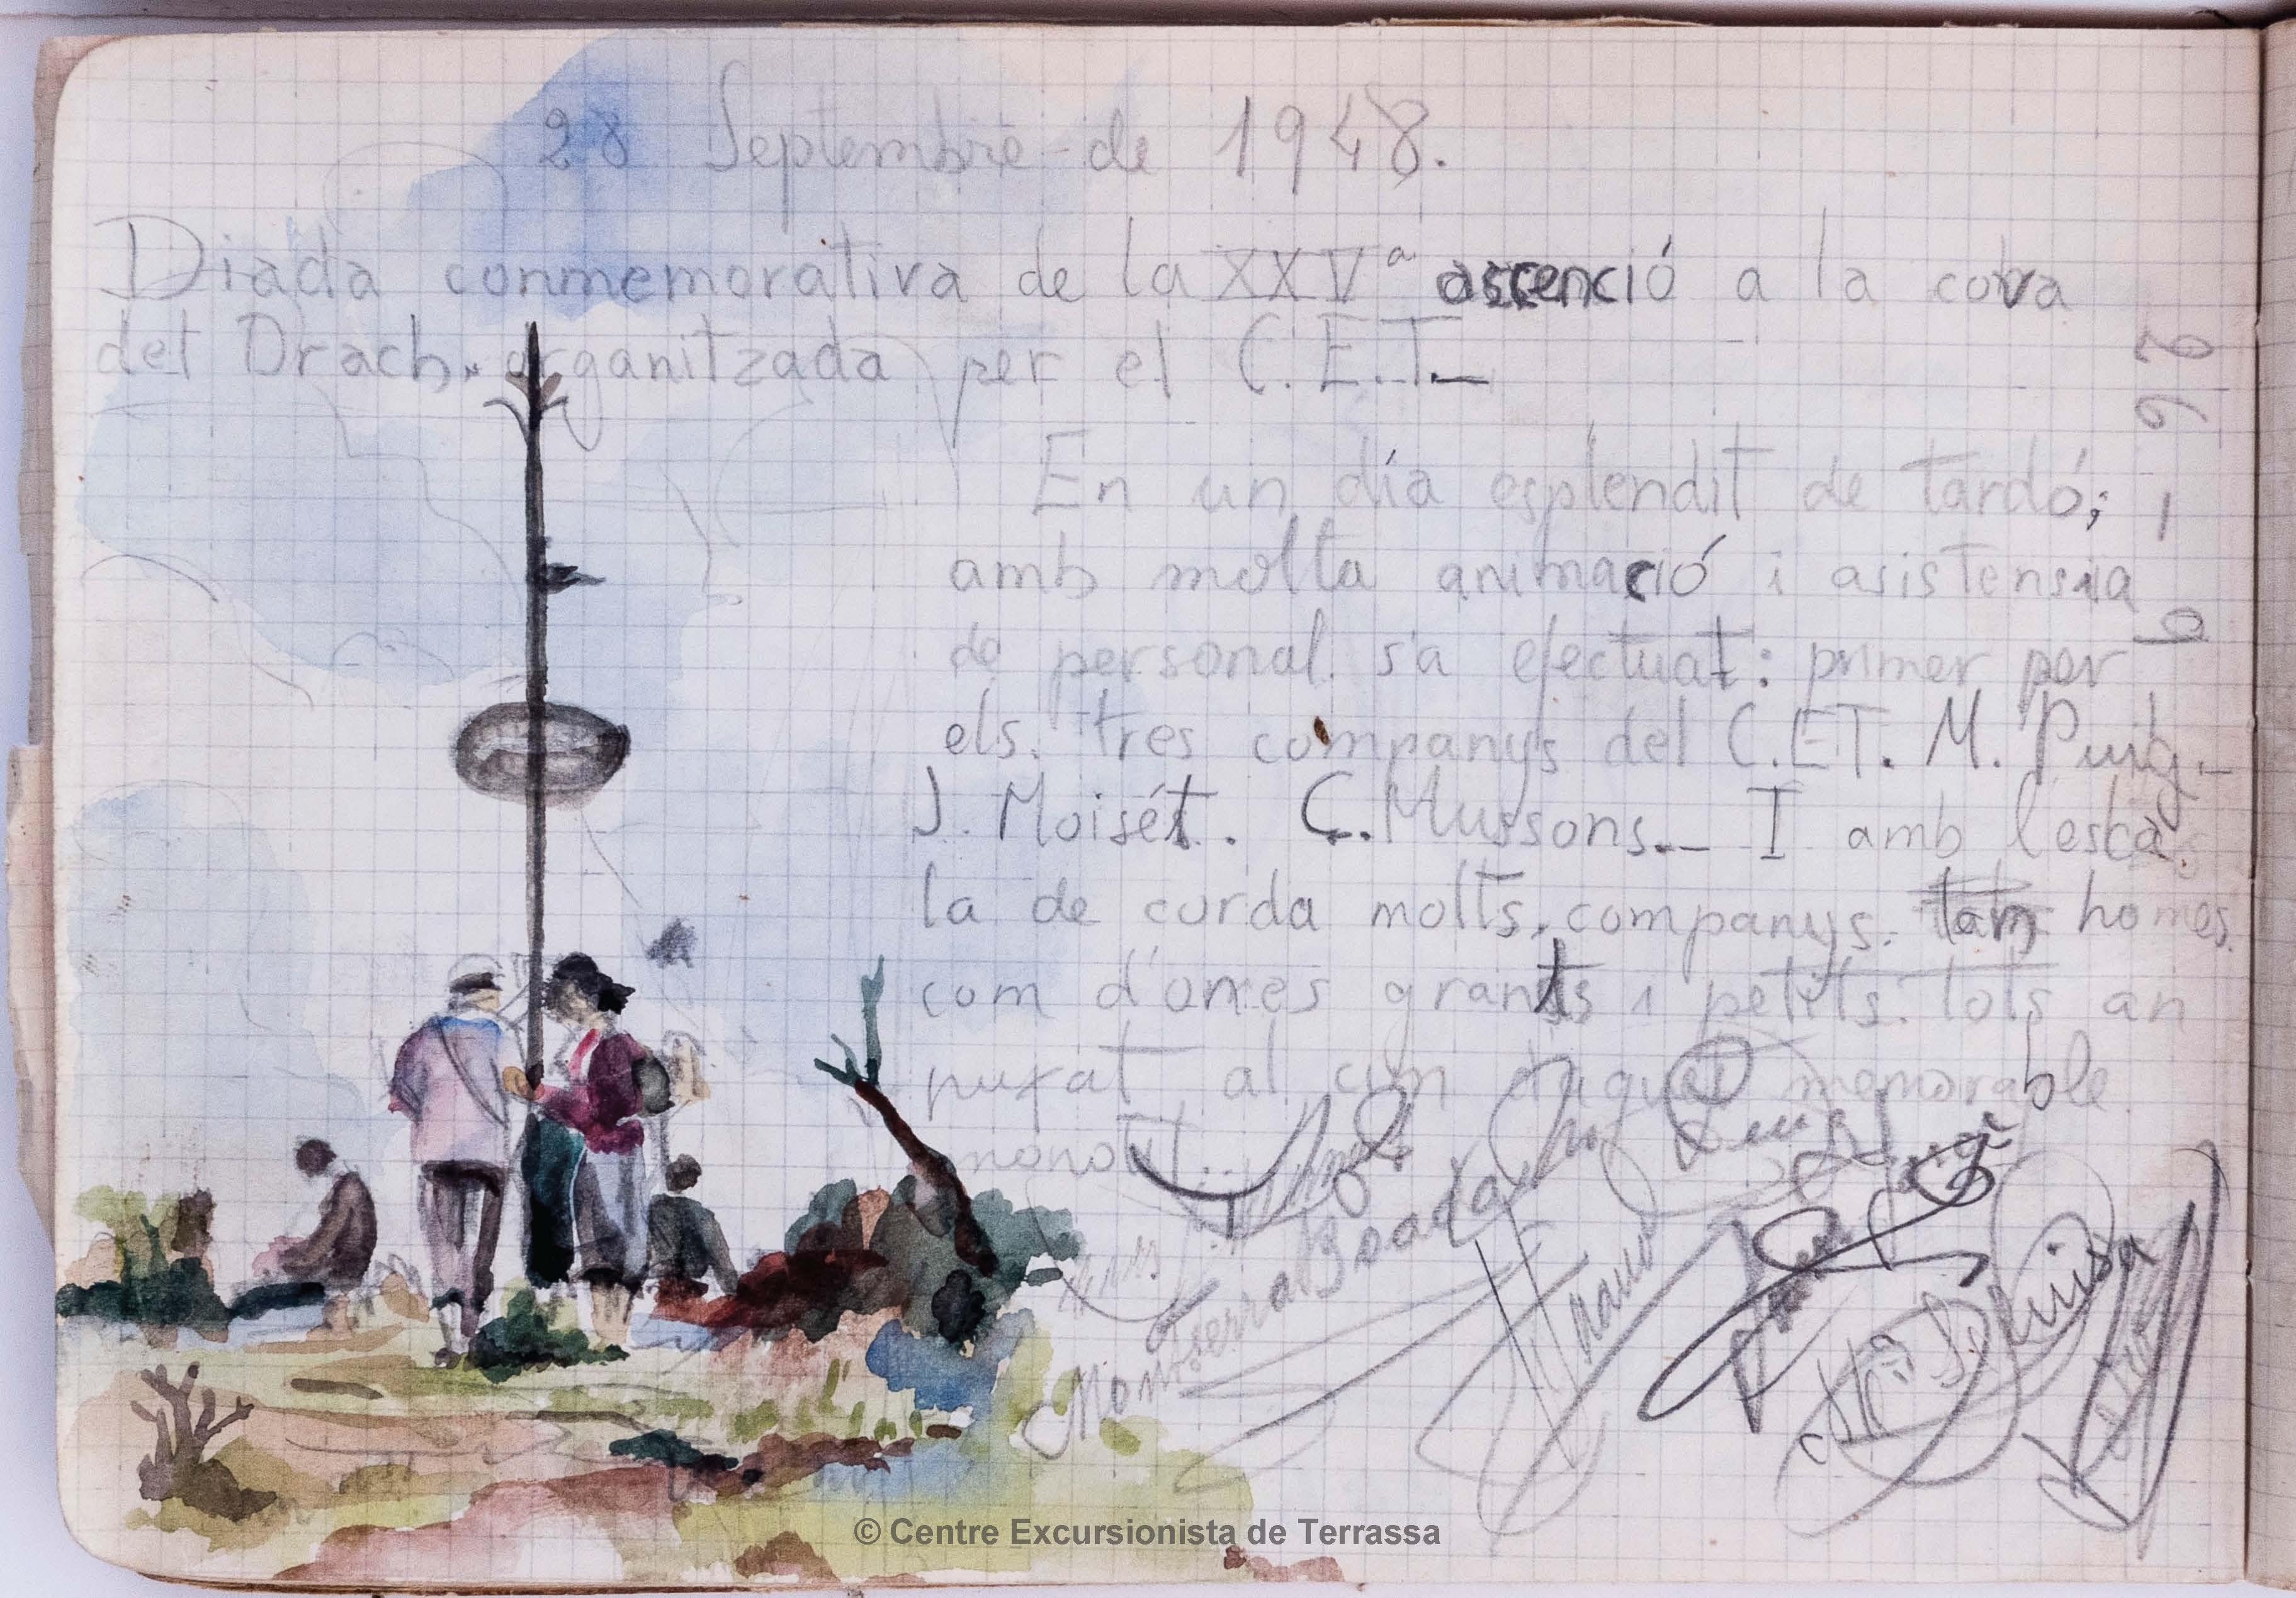 28 Septembre de 1948.
Diada conmemorativa de la XXVª ascenció a la cova
del Drach. organitzada per el C.E.T.—
En un día esplendit de tardó;
amb molta animació i asistensia
de personal s'a efectuat: primer per
els. tres companys del C.E.T. M. Puig.—
J. Moisét. C. Mussons.— I amb l'esca
la de corda molts. companys. tan homes.
com d'ones grants i petits. tots an
pujat al cim d'aquet memorable
monolit..
Monserrat Boada
Luisa
26 - 9
© Centre Excursionista de Terrassa